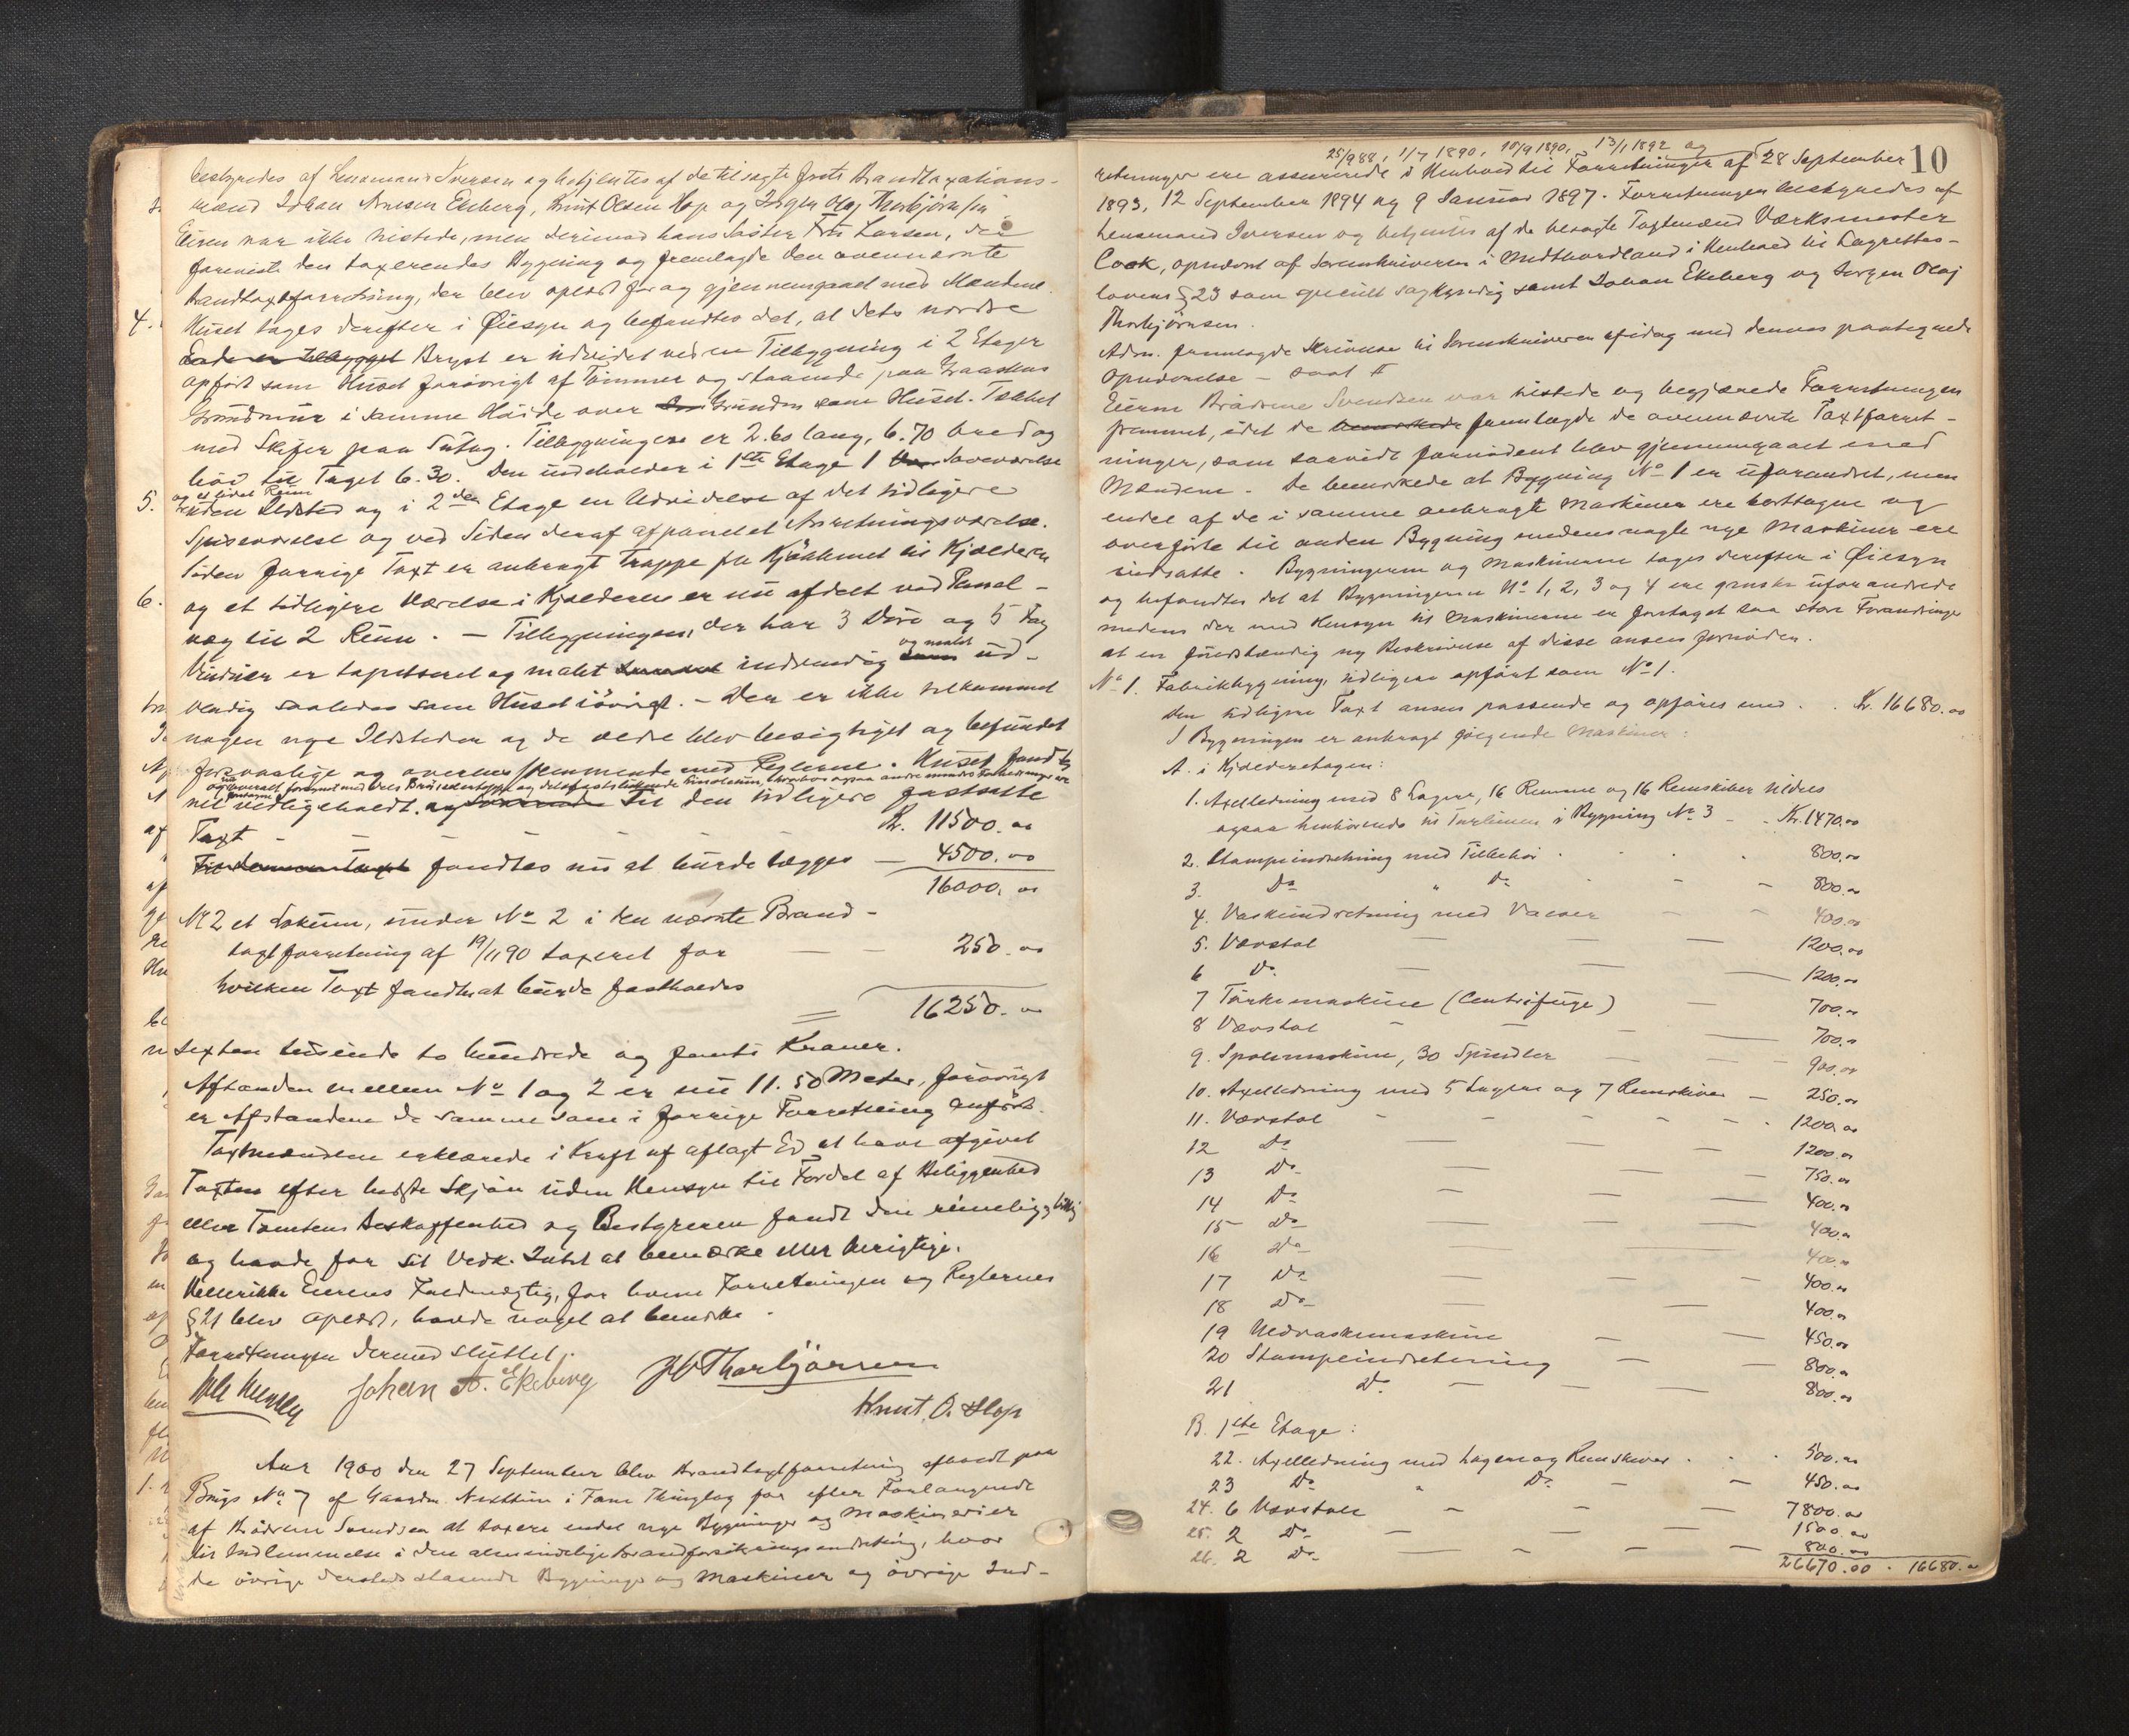 bestyredes af Lensmand Iversen og betjentes af de tilsagte faste Brandtaxations-
mænd Johan Arnesen Ekeberg, Knut Olsen Hop og Jørgen Olaj Thorbjørnsen.
Eieren var ikke tilstede, men derimod hans Søster Frk Larsen, der
foreviste den taxerendes Bygning og fremlagde den ovennævnte
Brandtaxtforretning, der blev oplæst for og gjennemgaaet med Mændene.
4. Huset toges derefter i Øiesyn og befandtes det, at dets nordre
Ende er tilbygget Bryst er udvidet ved en Tilbygning i 2 Etager
opført som Huset forøvrigt af Tømmer og staaende paa Graastens
Grundmur i samme Høide over Grunden som Huset. Tækket
med Skifer paa Sutag. Tilbygningen er 2.60 lang, 6.70 bred og
høi til Taget 6.30. Den indeholder i 1ste Etage 1 Soveværelse
og et lidet Rum
5. uden Ildsted og i 2den Etage en Udvidelse af det tidligere
Spiseværelse og ved Siden deraf afpanelet Anretningsværelse.
Siden forrige Taxt er anbragt Trappe fra Kjøkkenet til Kjælderen
6. og et tidligere Værelse i Kjælderen er nu afdelt ved Panel-
væg til 2 Rum. — Tilbygningen, der har 3 Døre og 5 Fag
Vinduer er tapetseret og malet indvendig og malet ud-
vendig saaledes som Huset iøvrigt. - Der er ikke tilkommet
nogen nye Ildsteder og de ældre blev besigtiget og befundet
forsvarlige og overensstemmende med Reglerne. Huset fandtes
vel vedligeholdt. Til den tidligere fastsatte
Taxt — Kr. 11500.00
fandtes nu at burde lægges — 4500.00
16000.00
No 2 et Lokum, under No 2 i den nævnte Brand-
taxtforretning af 19/11 90 taxeret for — 250.00
hvilken Taxt fandtes at burde fastholdes
16250.00
sexten tusinde to hundrede og femti Kroner.
Afstanden mellem No 1 og 2 er nu 11.50 Meter, forøvrigt
er Afstandene de samme som i forrige Forretning anført.
Taxtmændene erklærede i Kraft af aflagt Ed at have afgivet
Taxten efter bedste Skjøn uden Hensyn til Fordel af Beliggenhed
eller Tomtens Beskaffenhed og Bestyreren fandt den rimelig og billig
og havde for sit Vedk. Intet at bemærke eller berigtige.
Hellerikke Eierens Fuldmægtig, for hvem Forretningen og Reglernes
§ 21 blev oplæst, havde noget at bemærke.
Forretningen dermed sluttet.
Johan A. Ekeberg JO Thorbjørnsen
Knut O. Hop
Aar 1900 den 27 September blev Brandtaxtforretning afholdt paa
Brugs No 7 af Gaarden Nesttun i Fane Thinglag for efter Forlangende
af Brødrene Svendsen at taxere endel nye Bygninger og Maskinerier
til Indlemmelse i den almindelige Brandforsikringsindretning, hvor
de øvrige dersteds staaende Bygninger og Maskiner og øvrige Ind-
10
25/9 88, 1/7 1890, 10/9 1890, 13/1 1892 og
retninger ere assurerede i Henhold til Forretninger af 28 September
1893, 12 September 1894 og 9 Januar 1897. Forretningen bestyredes af
Lensmand Iversen og betjentes af de besagte Taxtmænd Værksmester
Cook, opnævnt af Sorenskriveren i Midthordland i Henhold til Lagrettes-
lovens § 23 som specielt sagkyndig samt Johan Ekeberg og Jørgen Olaj
Thorbjørnsen.
Adm. fremlagde Skrivelse til Sorenskriveren af idag med dennes paategnede
Opnævnelse —
Eierne Brødrene Svendsen var tilstede og begjærede Forretningen
fremmet, idet de fremlagde de ovennævnte Taxtforret-
ninger, som saavidt fornødent blev gjennemgaaet med
Mændene. De bemærkede at Bygning No 1 er uforandret, men
endel af de i samme anbragte Maskiner ere borttagne og
overførte til anden Bygning medens nogle nye Maskiner ere
indsatte. Bygningerne og Maskinerne toges derefter i Øiesyn
og befandtes det at Bygningerne No 1, 2, 3 og 4 ere ganske uforandrede
medens der med Hensyn til Maskinerne er foretaget saa store Forandringer
at en fuldstændig ny Beskrivelse af disse ansees fornøden.
No 1. Fabrikbygning, tidligere opført som No 1.
Den tidligere Taxt ansees passende og opføres med . . Kr. 16680.00
I Bygningen er anbragt følgende Maskiner:
A. i Kjælderetagen:
1. Axelledning med 8 Lagere, 16 Remme og 16 Remskiver tildels
ogsaa henhørende til Turbinen i Bygning No 3 - - Kr. 1470.00
2. Stampeindretning med Tilbehør . . . 800.00
3. Do " Do - — 800.00
4. Vaskeindretning med Valser — 400.00
5. Vævstol — 1200.00
6 Do — 1200.00
7 Tørkemaskine (Centrifuge) — 700.00
8 Vævstol — 700.00
9. Spolemaskine, 30 Spindler — 900.00
10. Axelledning med 5 Lagere og 7 Remskiver — 250.00
11. Vævstol - - - 1200.00
12 Do — 1200.00
13 Do — 750.00
14 Do — 400.00
15 Do — 400.00
16 Do — 400.00
17 Do — 400.00
18 Do — 400.00
19 Uldvaskemaskine — 450.00
20 Stampeindretning — 800.00
21 Do — 800.00
B. 1ste Etage:
22. Axelledning med Lagere og Remskiver . . . 500.00
23 Do " Do — 450.00
24. 6 Vævstole — 7800.00
25. 2 Do — 1500.00
26. 2 Do — 800.00
26670.00 . 16680.00